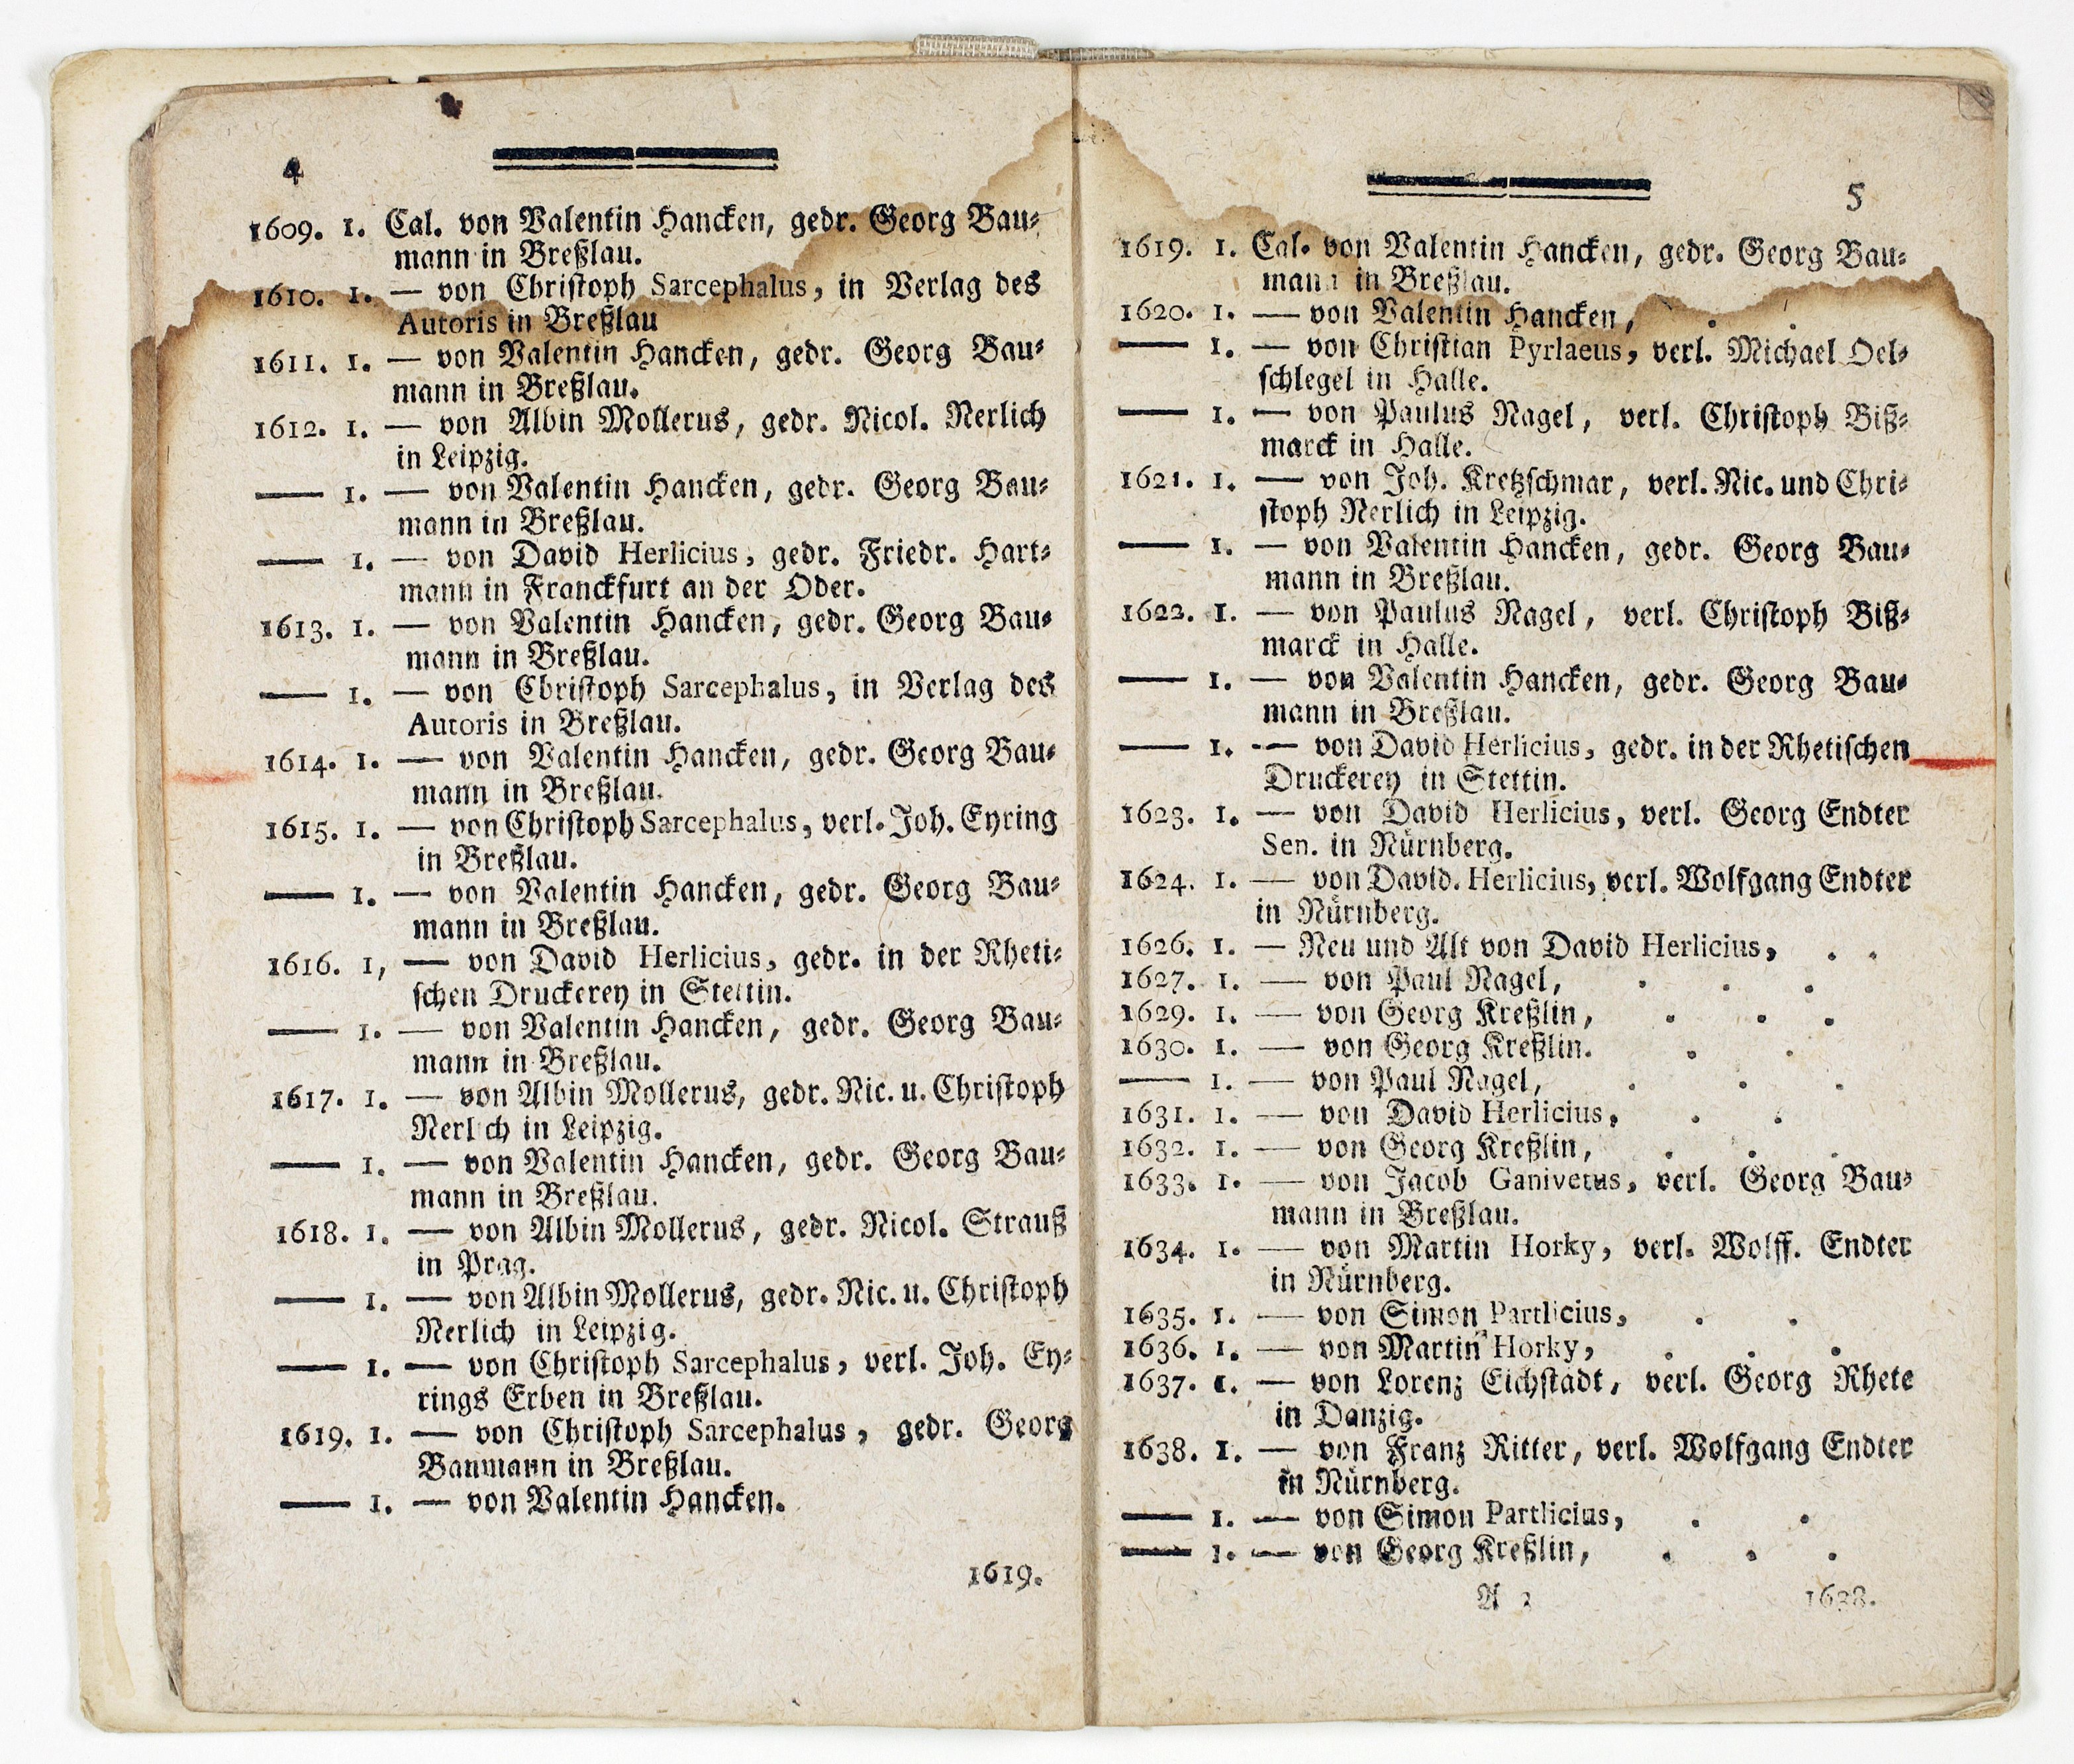 4
1609. 1. Cal. von Valentin Hancken, gedr. Georg Bau⸗
mann in Breßlau.
1610. 1. — von Christoph Sarcephalus, in Verlag des
Autoris in Breßlau
1611. 1. — von Valentin Hancken, gedr. Georg Bau⸗
mann in Breßlau.
1612. 1. — von Albin Mollerus, gedr. Nicol. Nerlich
in Leipzig.
— 1. — von Valentin Hancken, gedr. Georg Bau⸗
mann in Breßlau.
— 1. — von David Herlicius, gedr. Friedr. Hart⸗
mann in Franckfurt an der Oder.
1613. 1. — von Valentin Hancken, gedr. Georg Bau⸗
mann in Breßlau.
— 1. — von Christoph Sarcephalus, in Verlag des
Autoris in Breßlau.
1614. 1. — von Valentin Hancken, gedr. Georg Bau⸗
mann in Breßlau.
1615. 1. — von Christoph Sarcephalus, verl. Joh. Eyring
in Breßlau.
— 1. — von Valentin Hancken, gedr. Georg Bau⸗
mann in Breßlau.
1616. 1, — von David Herlicius, gedr. in der Rheti⸗
schen Druckerey in Stettin.
— 1. — von Valentin Hancken, gedr. Georg Bau⸗
mann in Breßlau.
1617. 1. — von Albin Mollerus, gedr. Nic. u. Christoph
Nerlich in Leipzig.
— 1. — von Valentin Hancken, gedr. Georg Bau⸗
mann in Breßlau.
1618. 1. — von Albin Mollerus, gedr. Nicol. Strauß
in Prag.
— 1. — von Albin Mollerus, gedr. Nic. u. Christoph
Nerlich in Leipzig.
— 1. — von Christoph Sarcephalus, verl. Joh. Ey⸗
rings Erben in Breßlau.
1619. 1. — von Christoph Sarcephalus, gedr. Georg
Baumann in Breßlau.
— 1. — von Valentin Hancken.
1619.
5
1619. 1. Cal. von Valentin Hancken, gedr. Georg Bau⸗
mann in Breßlau.
1620. 1. — von Valentin Hancken, . .
— 1. — von Christian Pyrlaeus, verl. Michael Oel⸗
schlegel in Halle.
— 1. — von Paulus Nagel, verl. Christoph Biß⸗
marck in Halle.
1621. 1. — von Joh. Kretzschmar, verl. Nic. und Chri⸗
stoph Nerlich in Leipzig.
— 1. — von Valentin Hancken, gedr. Georg Bau⸗
mann in Breßlau.
1622. 1. — von Paulus Nagel, verl. Christoph Biß⸗
marck in Halle.
— 1. — von Valentin Hancken, gedr. Georg Bau⸗
mann in Breßlau.
— 1. — von David Herlicius, gedr. in der Rhetischen
Druckerey in Stettin.
1623. 1. — von David Herlicius, verl. Georg Endter
Sen. in Nürnberg.
1624. 1. — von David. Herlicius, verl. Wolfgang Endter
in Nürnberg.
1626. 1. — Neu und Alt von David Herlicius, . .
1627. 1. — von Paul Nagel, . . .
1629. 1. — von Georg Kreßlin, . . .
1630. 1. — von Georg Kreßlin. . .
— 1. — von Paul Nagel, . . .
1631. 1. — von David Herlicius, . .
1632. 1. — von Georg Kreßlin, . . .
1633. 1. — von Jacob Ganivetus, verl. Georg Bau⸗
mann in Breßlau.
1634. 1. — von Martin Horky, verl. Wolff. Endter
in Nürnberg.
1635. 1. — von Simon Partlicius, . .
1636. 1. — von Martin Horky, . . .
1637. 1. — von Lorenz Eichstädt, verl. Georg Rhete
in Danzig.
1638. 1. — von Franz Ritter, verl. Wolfgang Endter
in Nürnberg.
— 1. — von Simon Partlicius, . .
— 1. — von Georg Kreßlin, . . .
A 3 1638.